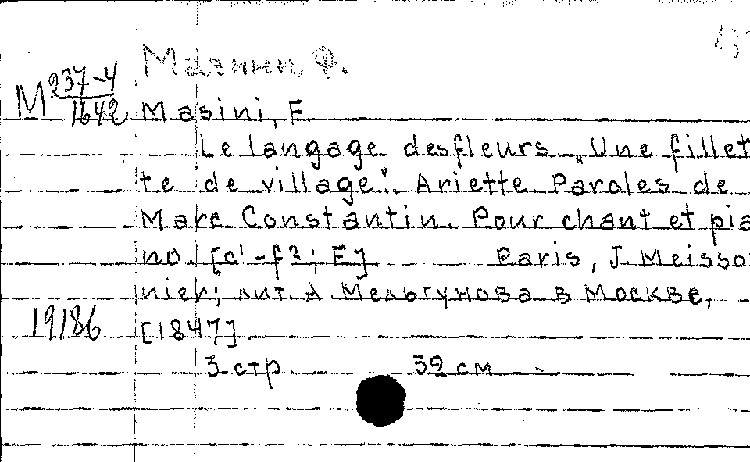 Мазини, Ф.
М 237-4
1642
Masini, F.
Le langage des fleurs „Une fillet
te de village“. Ariette Paroles de
Marc Constantin. Pour chant et pia
no. [c'-f2; F] Paris, J. Meisso
nier; лит. А. Мельгунова в Москве,
19186 [1847]
3 стр 32 см